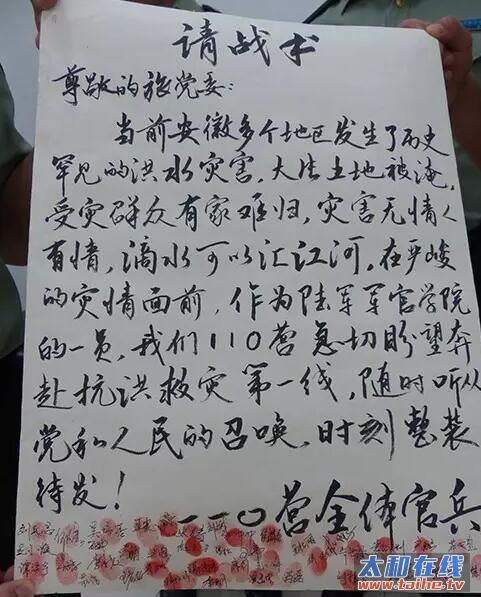 请战书
尊敬的旅党委：
当前安徽多个地区发生了历史
罕见的洪水灾害，大片土地被淹，
受灾群众有家难归，灾害无情人
有情，滴水可以汇江河，在严峻
的灾情面前，作为陆军军官学院
的一员，我们110营急切盼望奔
赴抗洪救灾第一线，随时听从
党和人民的召唤，时刻整装
待发！
一一〇营全体官兵
太和在线
www.taihe.tv